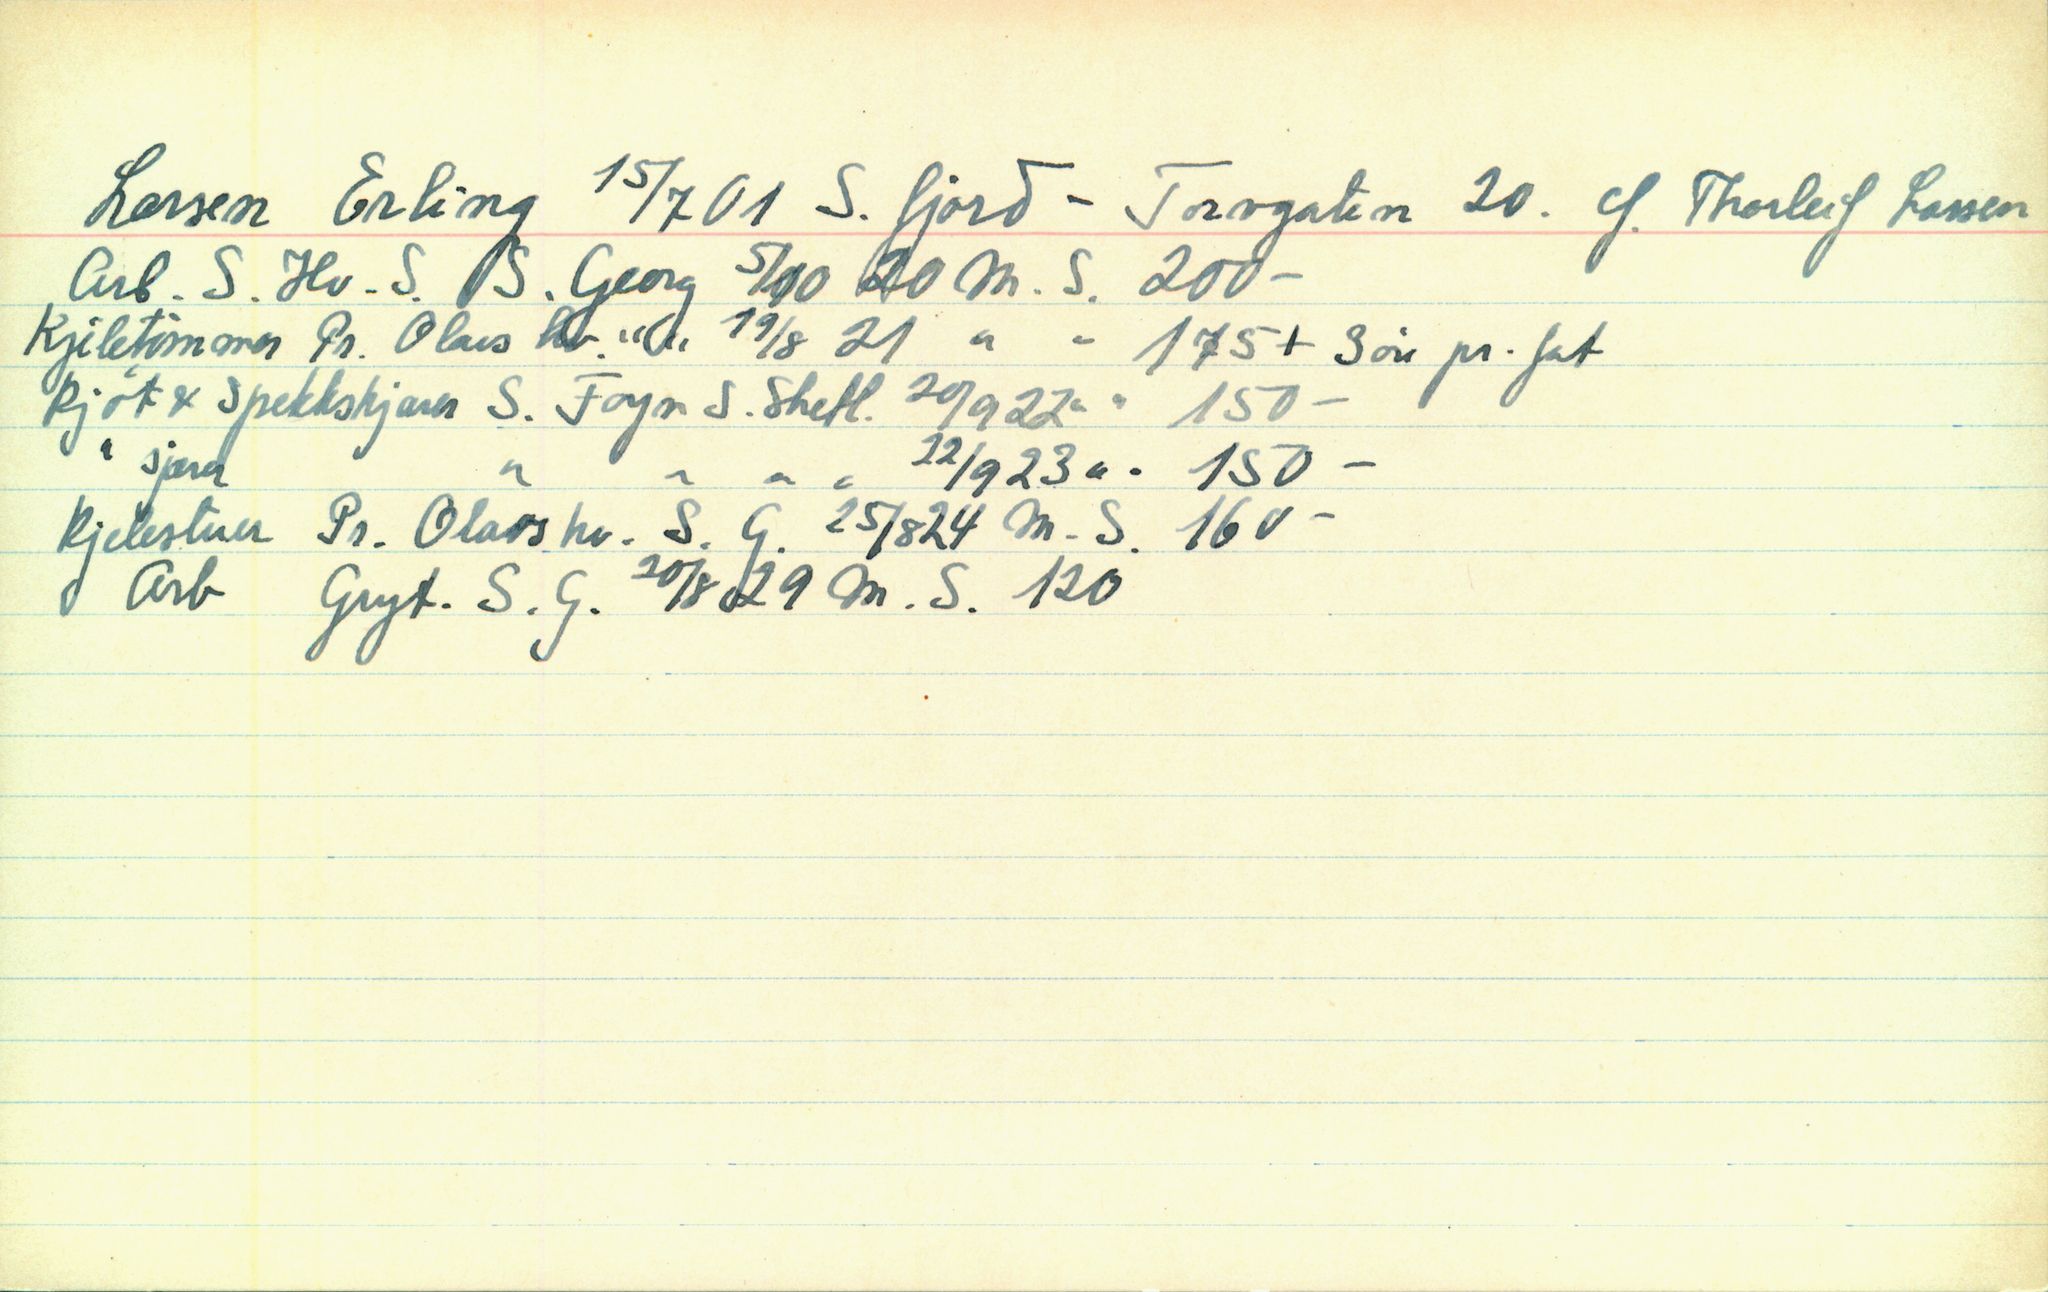 Larsen Erling 15/7 01 S. fjord - Torvgaten 20. cf. Thorleif Larsen
Arb. S. Hv. S. S. Georg 5/10 20 M. S. 200-
Kjeletømmer Pr. Olavs hv. " " 19/8 21 " " 175 + 3 öre pr. fat
Kjøt & Spekkskjærer S. Foyn S. Shetl. 20/9 22 " " 150 -
" " " " " 22/9 23 " " 150 -
Kjelestuer Pr. Olavs hv. S. G. 25/8 24 M. S. 160 -
Arb Gryt. S. G. 20/8 29 M. S. 120